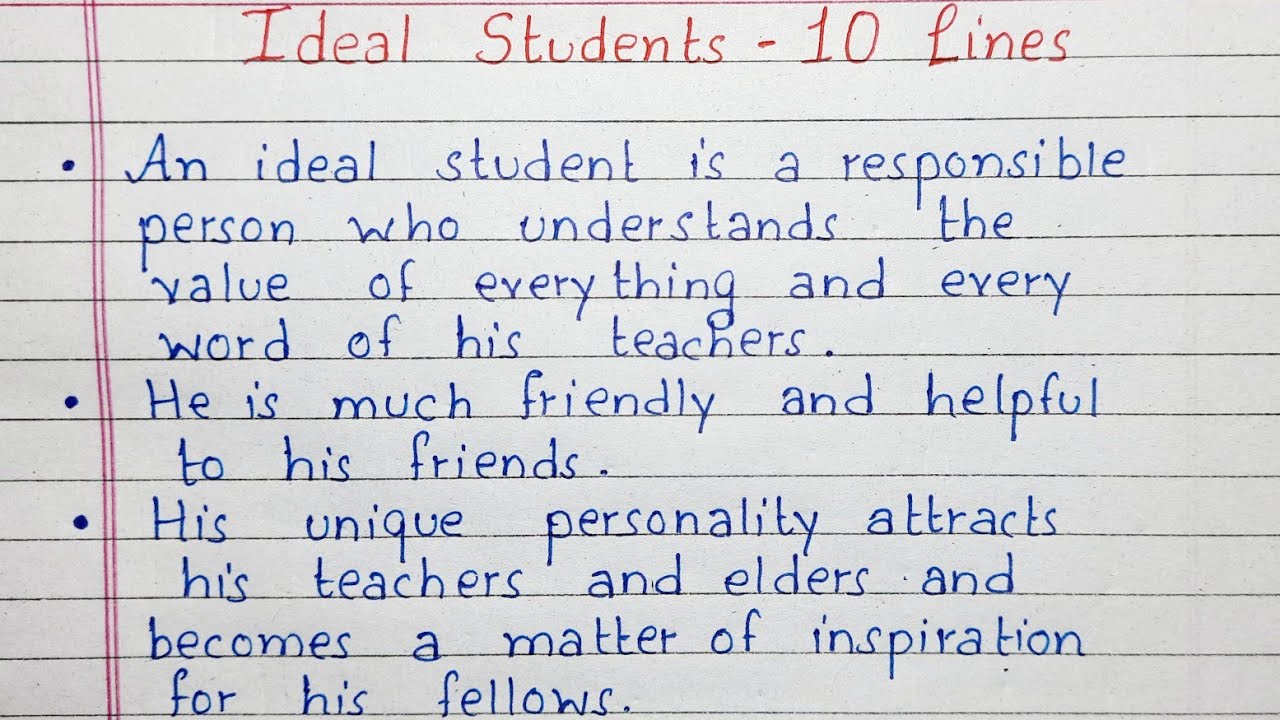 Ideal Students - 10 Lines
• An ideal student is a responsible
person who understands the
value of everything and every
word of his teachers.
• He is much friendly and helpful
to his friends.
• His unique personality attracts
his teachers and elders and
becomes a matter of inspiration
for his fellows.